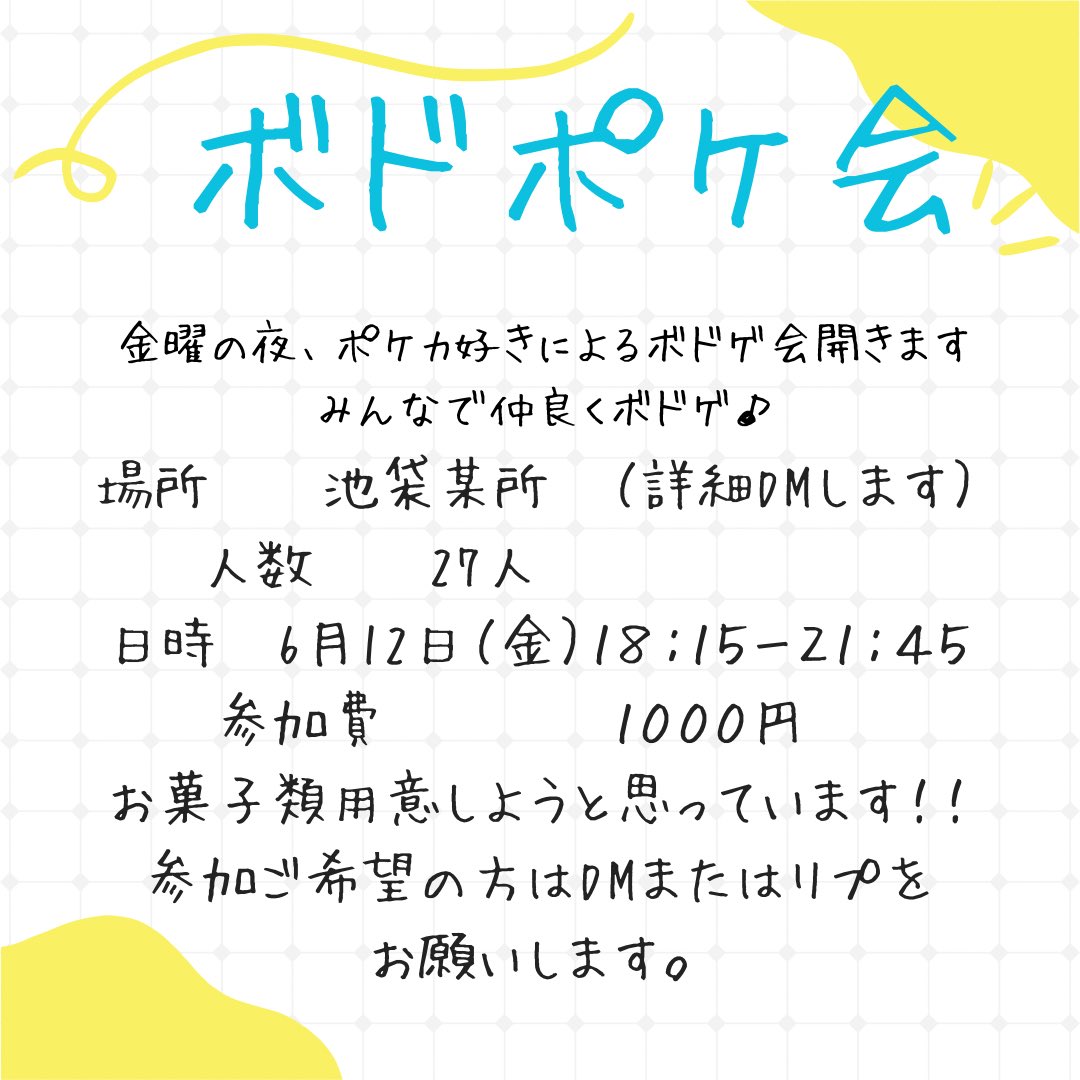 ボドポケ会
金曜の夜、ポケカ好きによるボドゲ会開きます
みんなで仲良くボドゲ♪
場所　池袋某所　(詳細DMします)
人数　27人
日時　6月12日(金)18:15-21:45
参加費　1000円
お菓子類用意しようと思っています!!
参加ご希望の方はDMまたはリプを
お願いします。